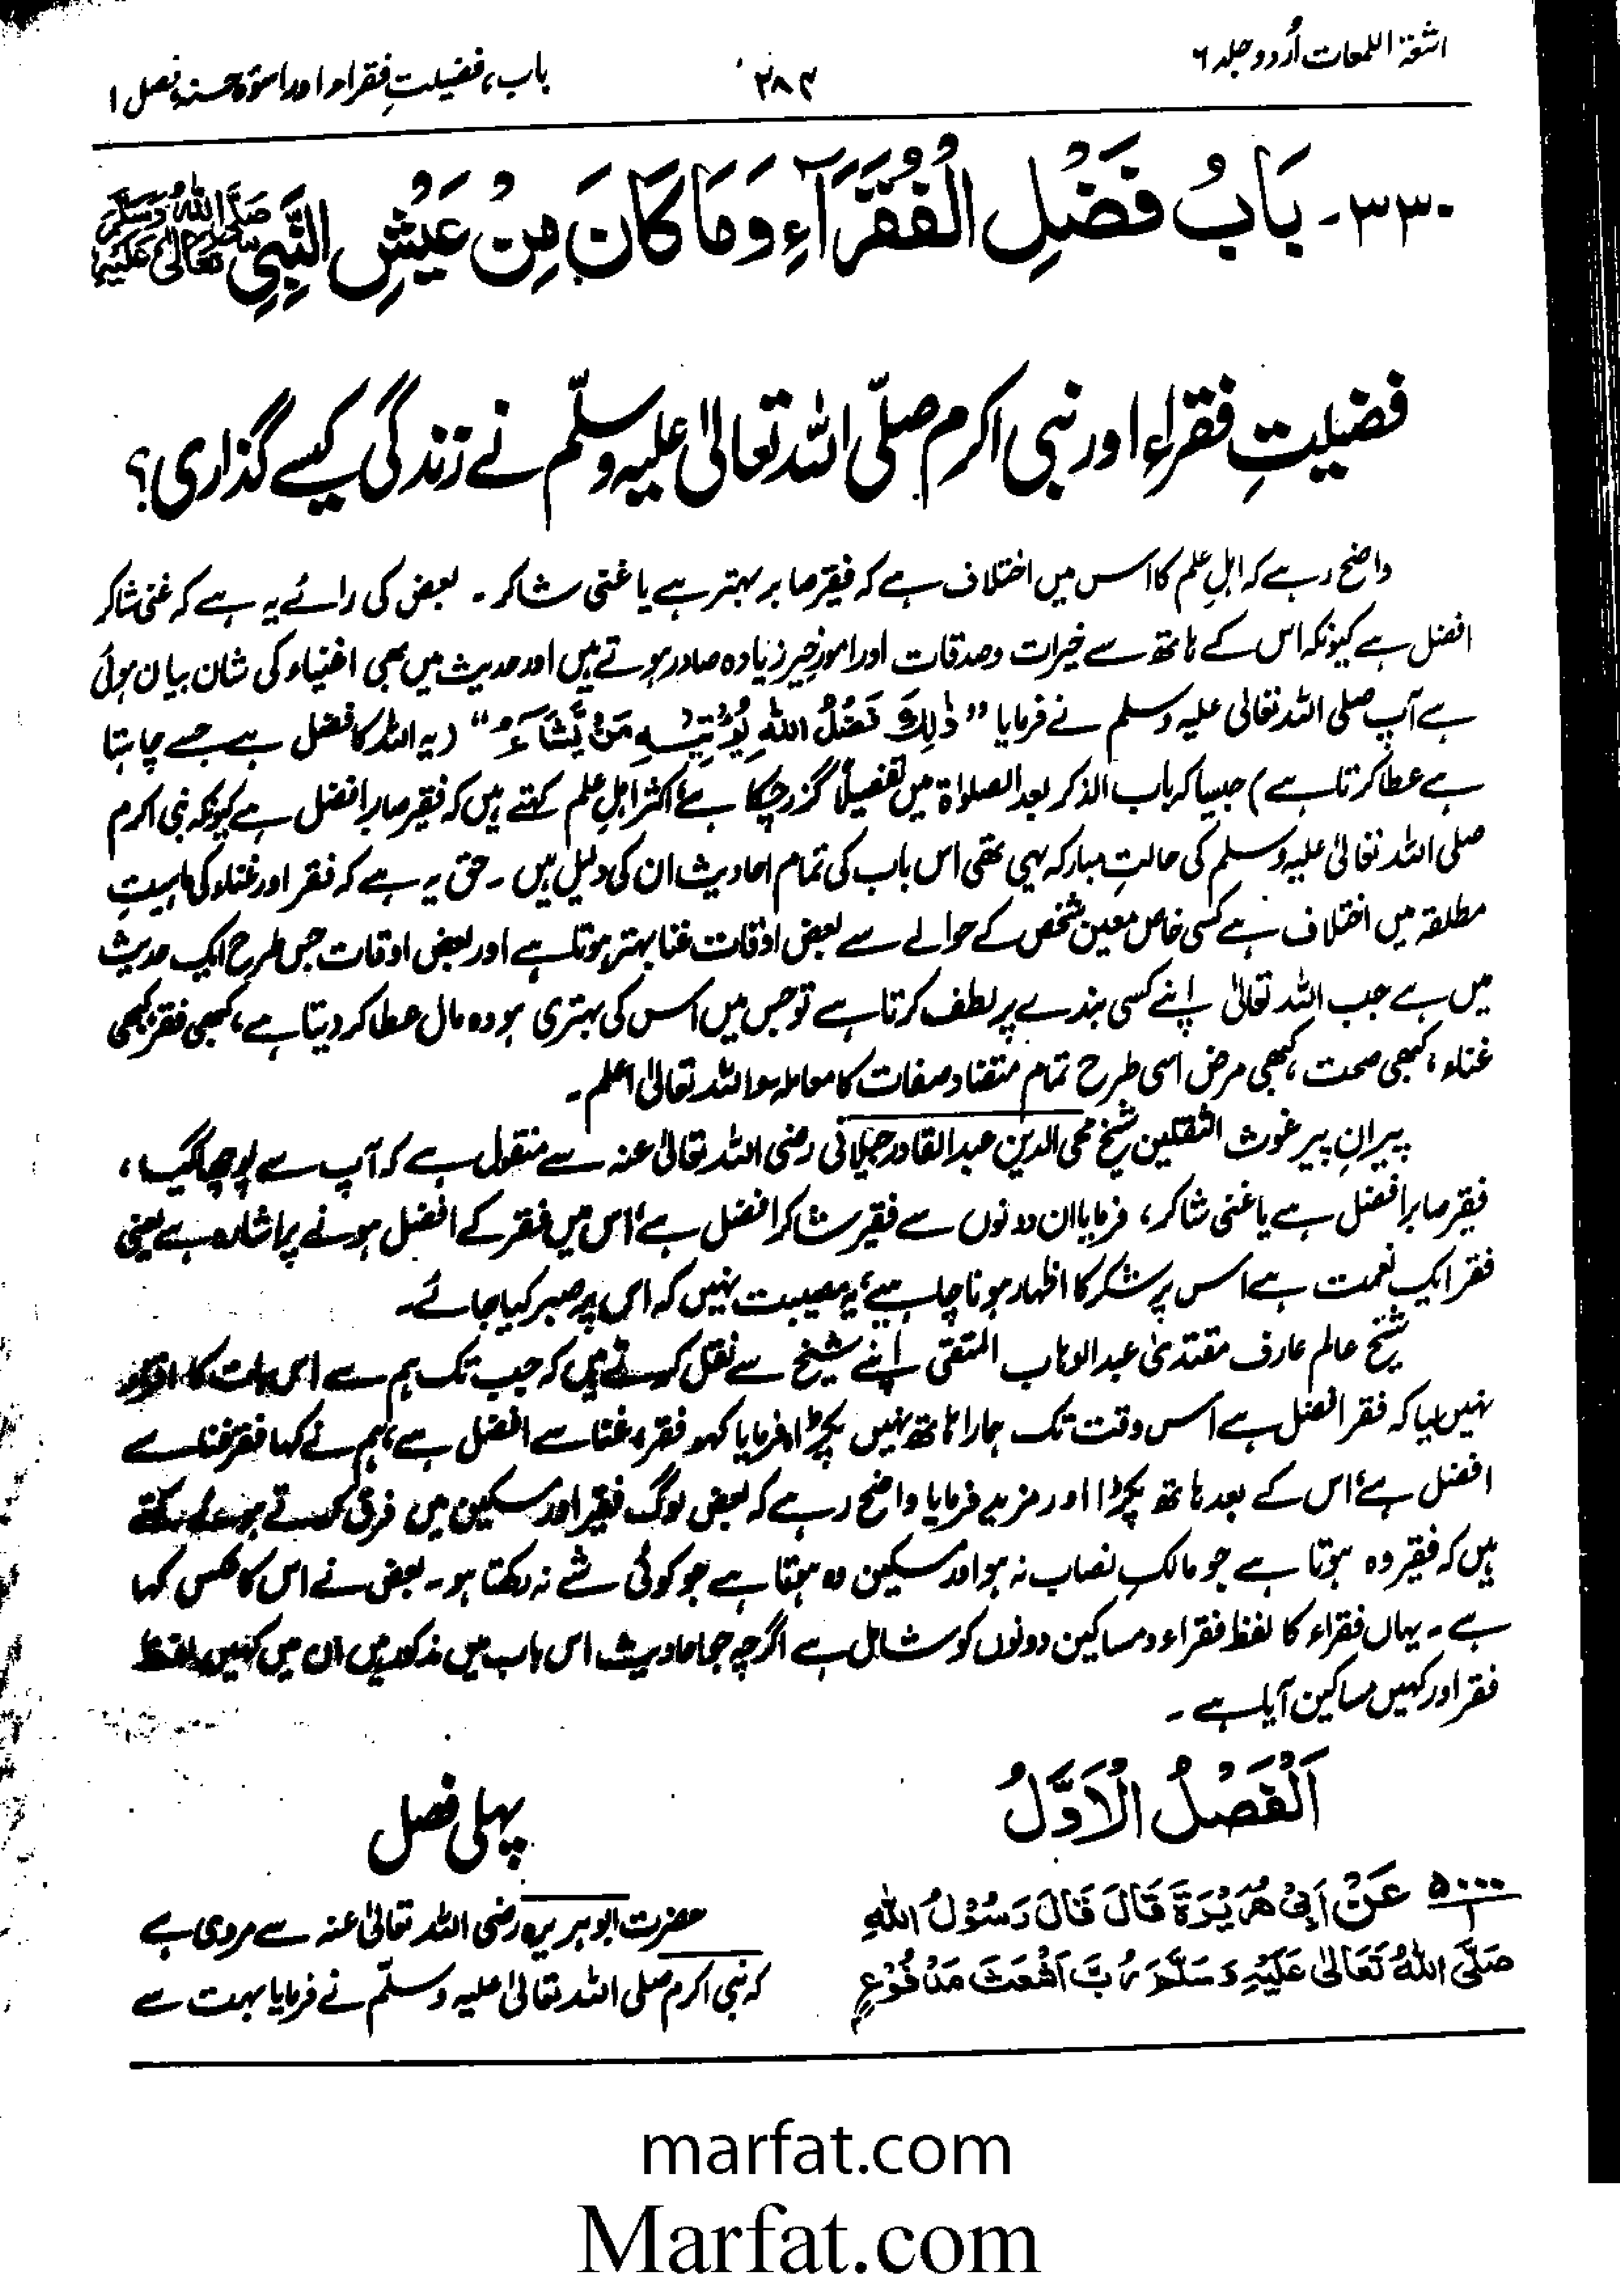 اشعۃ اللمعات اُردو جلد ۶
۲۸۴
باب، فضیلتِ فقراء اور اسوۂ حسنہ، فصل ۱
۳۳۰- بَابُ فَضْلِ الْفُقَرَآءِ وَمَا كَانَ مِنْ عَيْشِ النَّبِيِّ صَلَّى اللهُ تَعَالٰى عَلَيْهِ وَسَلَّمَ
فضیلتِ فقراء اور نبی اکرم صلّی اللہ تعالیٰ علیہ وسلّم نے زندگی کیسے گذاری؟
واضح رہے کہ اہلِ علم کا اس میں اختلاف ہے کہ فقیر صابر بہتر ہے یا غنی شاکر ۔ بعض کی رائے یہ ہے کہ غنی شاکر
افضل ہے کیونکہ اس کے ہاتھ سے خیرات و صدقات اور امورِ خیر زیادہ صادر ہوتے ہیں اور حدیث میں بھی اغنیاء کی شان بیان ہوئی
ہے آپ صلی اللہ تعالی علیہ وسلم نے فرمایا "ذٰلِكَ فَضْلُ اللهِ يُؤْتِيْهِ مَنْ يَّشَآءُ" (یہ اللہ کا فضل ہے جسے چاہتا
ہے عطا کرتا ہے) جیسا کہ باب الذکر بعد الصلوٰۃ میں تفصیلاً گزر چکا ہے، اکثر اہلِ علم کہتے ہیں کہ فقیر صابر افضل ہے کیونکہ نبی اکرم
صلی اللہ تعالیٰ علیہ وسلم کی حالتِ مبارکہ یہی تھی اس باب کی تمام احادیث ان کی دلیل ہیں ۔ حق یہ ہے کہ فقر اور غناء کی ماہیتِ
مطلقہ میں اختلاف ہے کسی خاص معین شخص کے حوالے سے بعض اوقات غنا بہتر ہوتا ہے اور بعض اوقات جس طرح ایک حدیث
میں ہے جب اللہ تعالیٰ اپنے کسی بندے پر لطف کرتا ہے تو جس میں اس کی بہتری ہو وہ مال عطا کر دیتا ہے، کبھی فقر کبھی
غناء، کبھی صحت، کبھی مرض اسی طرح تمام متضاد صفات کا معاملہ ہوا للہ تعالیٰ اعلم ۔
پیرانِ پیر غوث الثقلین شیخ محی الدین عبدالقادر جیلانی رضی اللہ تعالیٰ عنہ سے منقول ہے کہ آپ سے پوچھا گیا،
فقیر صابر افضل ہے یا غنی شاکر، فرمایا ان دونوں سے فقیر شاکر افضل ہے، اس میں فقر کے افضل ہونے پر اشارہ ہے یعنی
فقر ایک نعمت ہے اس پر شکر کا اظہار ہونا چاہیے، یہ مصیبت نہیں کہ اس پر صبر کیا جائے ۔
شیخ عالم عارف مقتدیٰ عبدالوہاب المتقی اپنے شیخ سے نقل کرتے ہیں کہ جب تک ہم سے اس بات کا اقرار
نہیں لیا کہ فقر افضل ہے اس وقت تک ہمارا ہاتھ نہیں پکڑا، فرمایا کہو فقر، غنا سے افضل ہے، ہم نے کہا فقر غنا سے
افضل ہے، اس کے بعد ہاتھ پکڑا اور مزید فرمایا واضح رہے کہ بعض لوگ فقیر اور مسکین میں فرق کرتے ہوئے کہتے
ہیں کہ فقیر وہ ہوتا ہے جو مالکِ نصاب نہ ہو اور مسکین وہ ہوتا ہے جو کوئی شے نہ رکھتا ہو ۔ بعض نے اس کا عکس کہا
ہے ۔ یہاں فقراء کا لفظ فقراء و مساکین دونوں کو شامل ہے اگرچہ جو احادیث اس باب میں مذکور ہیں ان میں کہیں لفظ
فقر اور کہیں مساکین آیا ہے ۔
اَلْفَصْلُ الْاَوَّلُ
پہلی فصل
۵۰۰۰/۱ عَنْ اَبِيْ هُرَيْرَةَ قَالَ قَالَ رَسُوْلُ اللهِ
صَلَّى اللهُ تَعَالٰى عَلَيْهِ وَسَلَّمَ رُبَّ اَشْعَثَ مَدْفُوْعٍ
حضرت ابو ہریرہ رضی اللہ تعالیٰ عنہ سے مروی ہے
کہ نبی اکرم صلی اللہ تعالیٰ علیہ وسلّم نے فرمایا بہت سے
marfat.com
Marfat.com